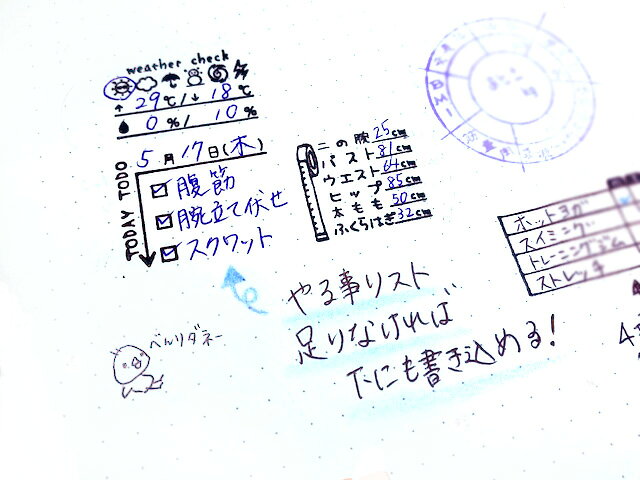 weather check
29℃/↓18℃
0%/10%
5月17日(木)
TODAY TODO
腹筋
腕立て伏せ
スクワット
二の腕25cm
バスト81cm
ウエスト64cm
ヒップ85cm
太もも50cm
ふくらはぎ32cm
ホットヨガ
スイミング
トレーニングジム
ストレッチ
やる事リスト
足りなければ
下にも書き込める!
べんりダネー